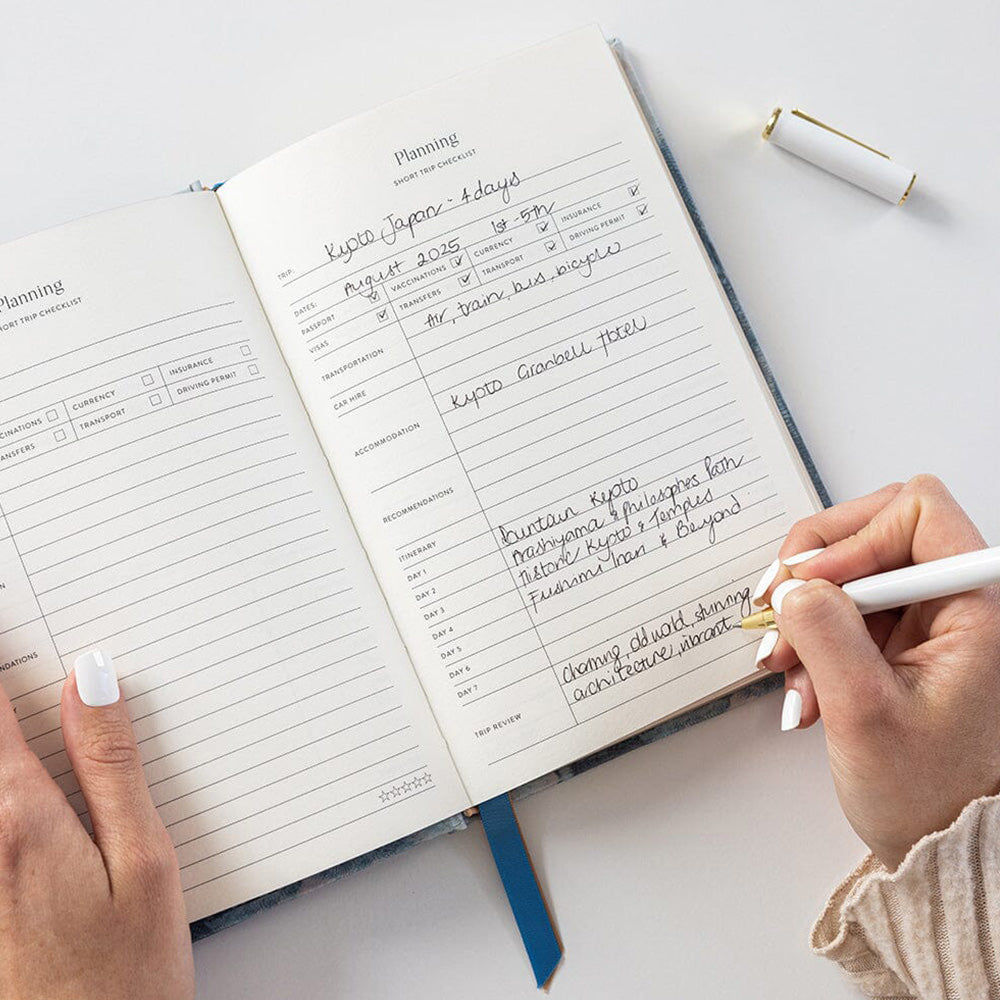 Planning
SHORT TRIP CHECKLIST
CURRENCY
INSURANCE
TRANSPORT
DRIVING PERMIT
Planning
SHORT TRIP CHECKLIST
TRIP: Kyoto Japan - 4 days
DATES: August 2025 1st - 5th
PASSPORT VACCINATIONS CURRENCY INSURANCE
VISAS TRANSFERS TRANSPORT DRIVING PERMIT
TRANSPORTATION Air, train, bus, bicycle
CAR HIRE
ACCOMMODATION Kyoto Granbell Hotel
RECOMMENDATIONS
ITINERARY
DAY 1 Kyoto
DAY 2 Arashiyama & Philosophes Path
DAY 3 Historic Kyoto & Temples
DAY 4 Fushimi Inari & Beyond
DAY 5
DAY 6
DAY 7
TRIP REVIEW
Charming, old world, stunning
architecture, vibrant